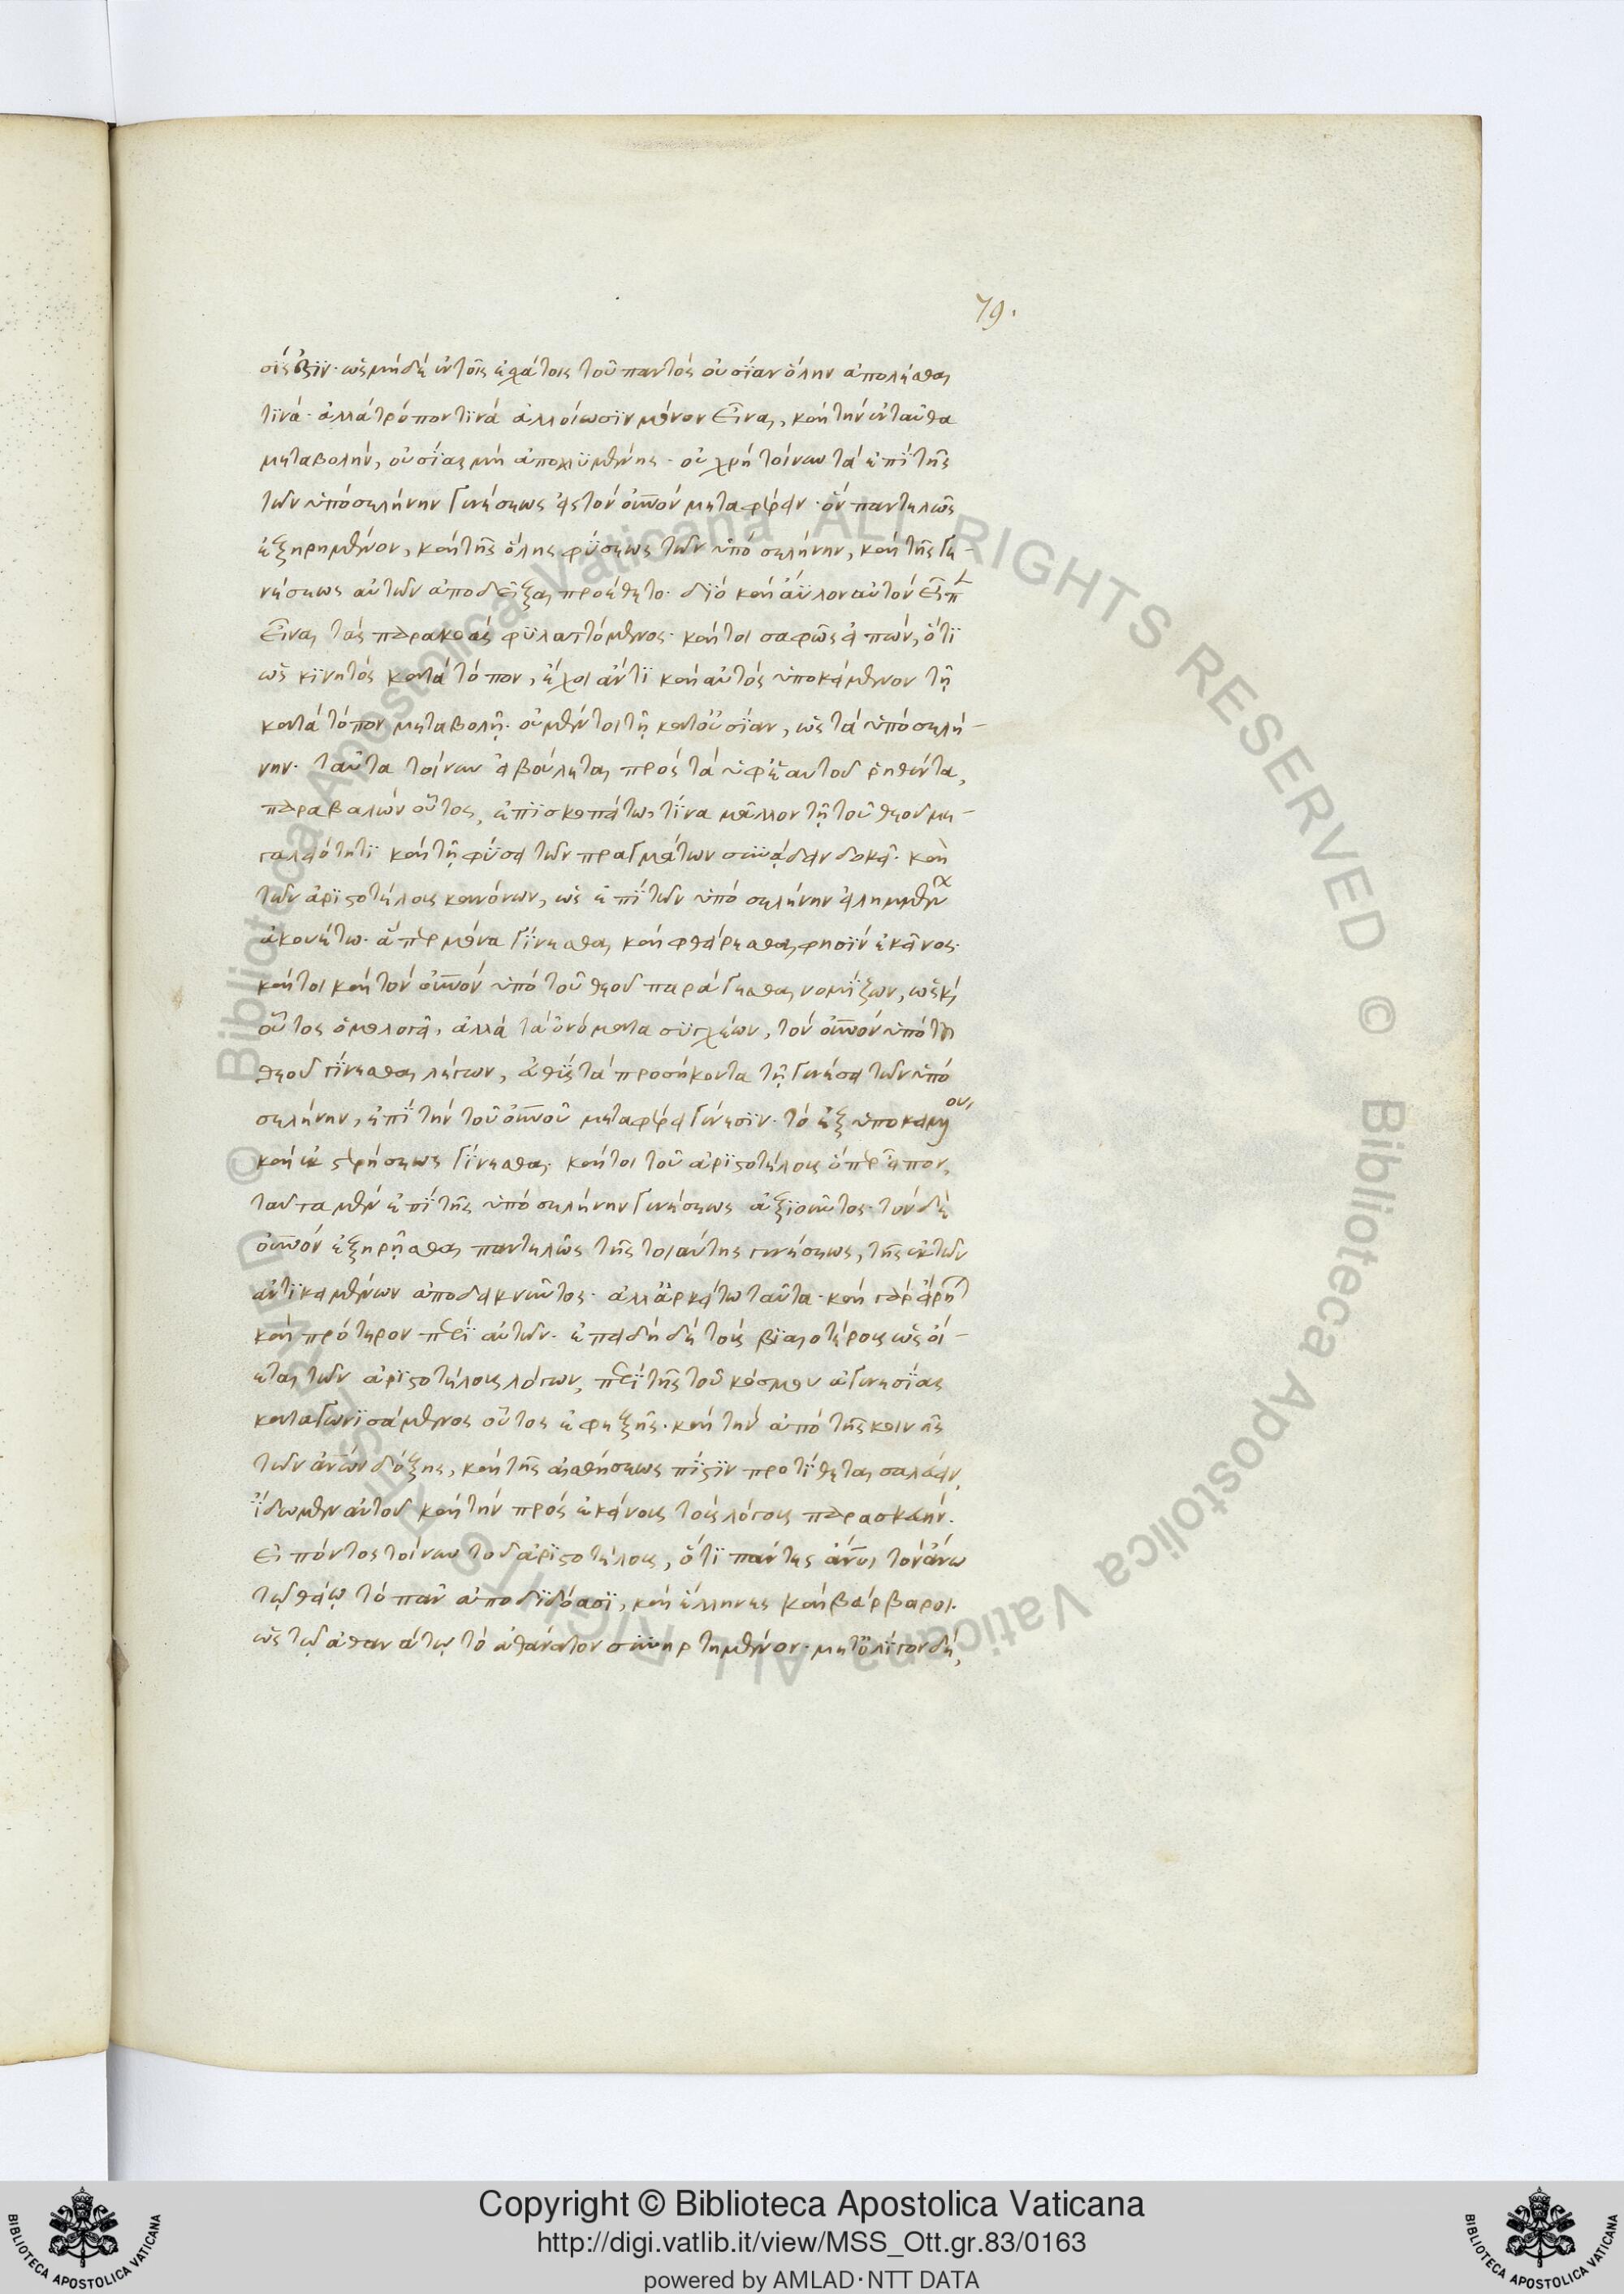 79.
σίς ἐστιν· ὡς μηδὲ ἐν τοῖς ἐσχάτοις τοῦ παντὸς οὐσίαν ὅλην ἀπολέσθαι
τινά· ἀλλὰ τρόπον τινὰ ἀλλοίωσιν μόνον εἶναι, καὶ τὴν ἐνταῦθα
μεταβολήν, οὐσίας μὴ ἀπολλυμένης· οὐ χρὴ τοίνυν τὰ ἐπὶ τῆς
τῶν ὑπὸ σελήνην γενέσεως εἰς τὸν οὐνὸν μεταφέρειν· ὃν παντελῶς
ἐξῃρημένον, καὶ τῆς ὅλης φύσεως τῶν ὑπὸ σελήνην, καὶ τῆς γε-
νέσεως αὐτῶν ἀποδεῖξαι προέθετο· διὸ καὶ ἄϋλον αὐτὸν εἶπ
εἶναι τὰς παρακοὰς φυλαττόμενος· καίτοι σαφῶς εἰπών, ὅτι
ὡς κινητὸς κατὰ τόπον, ἔχοι ἄν τι καὶ αὐτὸς ὑποκείμενον τῇ
κατὰ τόπον μεταβολῇ· οὐ μέντοι τῇ κατ' οὐσίαν, ὡς τὰ ὑπὸ σελή-
νην· ταῦτα τοίνυν εἰ βούλεται πρὸς τὰ ὑφ' ἑαυτοῦ ῥηθέντα,
παραβαλὼν οὗτος, ἐπισκοπείτω, τίνα μᾶλλον τῇ τοῦ θεοῦ με-
γαλειότητι καὶ τῇ φύσει τῶν πραγμάτων συνᾴδειν δοκεῖ· καὶ
τῶν ἀριστοτέλους κανόνων, ὡς ἐπὶ τῶν ὑπὸ σελήνην εἰλημμένων
ἀκουέτω· ἅπερ μόνα γίνεσθαι καὶ φθείρεσθαι φησὶν ἐκεῖνος·
καίτοι καὶ τὸν οὐνὸν ὑπὸ τοῦ θεοῦ παράγεσθαι νομίζων, ὡς καὶ
οὗτος ὁμολογεῖ, ἀλλὰ τὰ ὀνόματα συγχέων, τὸν οὐνὸν ὑπὸ τοῦ
θεοῦ γίνεσθαι λέγων, εὐθὺς τὰ προσήκοντα τῇ γενέσει τῶν ὑπὸ
σελήνην, ἐπὶ τὴν τοῦ οὐνοῦ μεταφέρει γένεσιν· τὸ ἐξ ὑποκειμένου,
καὶ ἐκ στερήσεως γίνεσθαι· καίτοι τοῦ ἀριστοτέλους ὅπερ εἶπον,
ταῦτα μὲν ἐπὶ τῆς ὑπὸ σελήνην γενέσεως ἀξιοῦντος· τὸν δὲ
οὐνὸν ἐξῃρῆσθαι παντελῶς τῆς τοιαύτης γενέσεως, τῆς ἐκ τῶν
ἀντικειμένων ἀποδεικνύντος· ἀλλ' ἀρκείτω ταῦτα· καὶ γὰρ εἴρητ
καὶ πρότερον περὶ αὐτῶν· ἐπειδὴ δὲ τοὺς βιαιοτέρους ὡς οἴ-
εται τῶν ἀριστοτέλους λόγων, περὶ τῆς τοῦ κόσμου ἀγενεσίας
καταγωνισάμενος οὗτος ἐφεξῆς· καὶ τὴν ἀπὸ τῆς κοινῆς
τῶν ἀνων δόξης, καὶ τῆς αἰσθήσεως πίστιν προτίθεται σαλεύειν,
ἴδωμεν αὐτοῦ καὶ τὴν πρὸς ἐκείνους τοὺς λόγους παρασκευήν.
εἰπόντος τοίνυν τοῦ ἀριστοτέλους, ὅτι πάντες ἄνοι τὸν ἄνω
τῷ θείῳ τόπον ἀποδιδόασι, καὶ ἕλληνες καὶ βάρβαροι.
ὡς τῷ ἀθανάτῳ τὸ ἀθάνατον συνηρτημένον· μετ' ὀλίγον δέ,
Copyright © Biblioteca Apostolica Vaticana
http://digi.vatlib.it/view/MSS_Ott.gr.83/0163
powered by AMLAD·NTT DATA